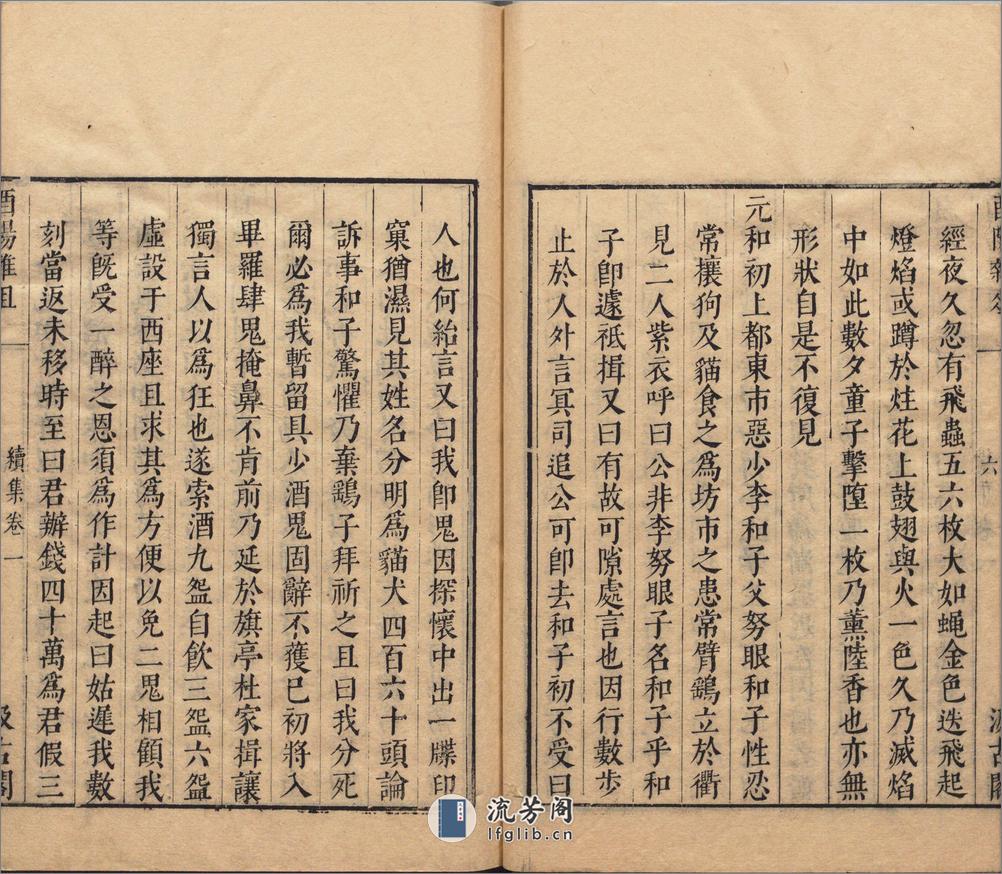 經夜久忽有飛蟲五六枚大如蝿金色迭飛起
燈焰或蹲於炷花上鼓翅與火一色久乃滅焰
中如此數夕童子擊墮一枚乃薰陸香也亦無
形狀自是不復見
元和初上都東市惡少李和子父努眼和子性忍
常攘狗及貓食之為坊市之患常臂鷂立於衢
見二人紫衣呼曰公非李努眼子名和子乎和
子卽遽祗揖又曰有故可隙處言也因行數步
止於人外言冥司追公可卽去和子初不受曰
人也何紿言又曰我卽鬼因探懷中出一牒印
窠猶濕見其姓名分明為貓犬四百六十頭論
訴事和子驚懼乃棄鷂子拜祈之且曰我分死
爾必為我暫留具少酒鬼固辭不獲已初將入
畢羅肆鬼掩鼻不肯前乃延於旗亭杜家揖讓
獨言人以為狂也遂索酒九盌自飮三盌六盌
虛設于西座且求其為方便以免二鬼相顧我
等旣受一醉之恩須為作計因起曰姑遲我數
刻當返未移時至曰君辦錢四十萬為君假三
酉陽雜俎
續集卷一
汲古閣
流芳阁
lfglib.cn